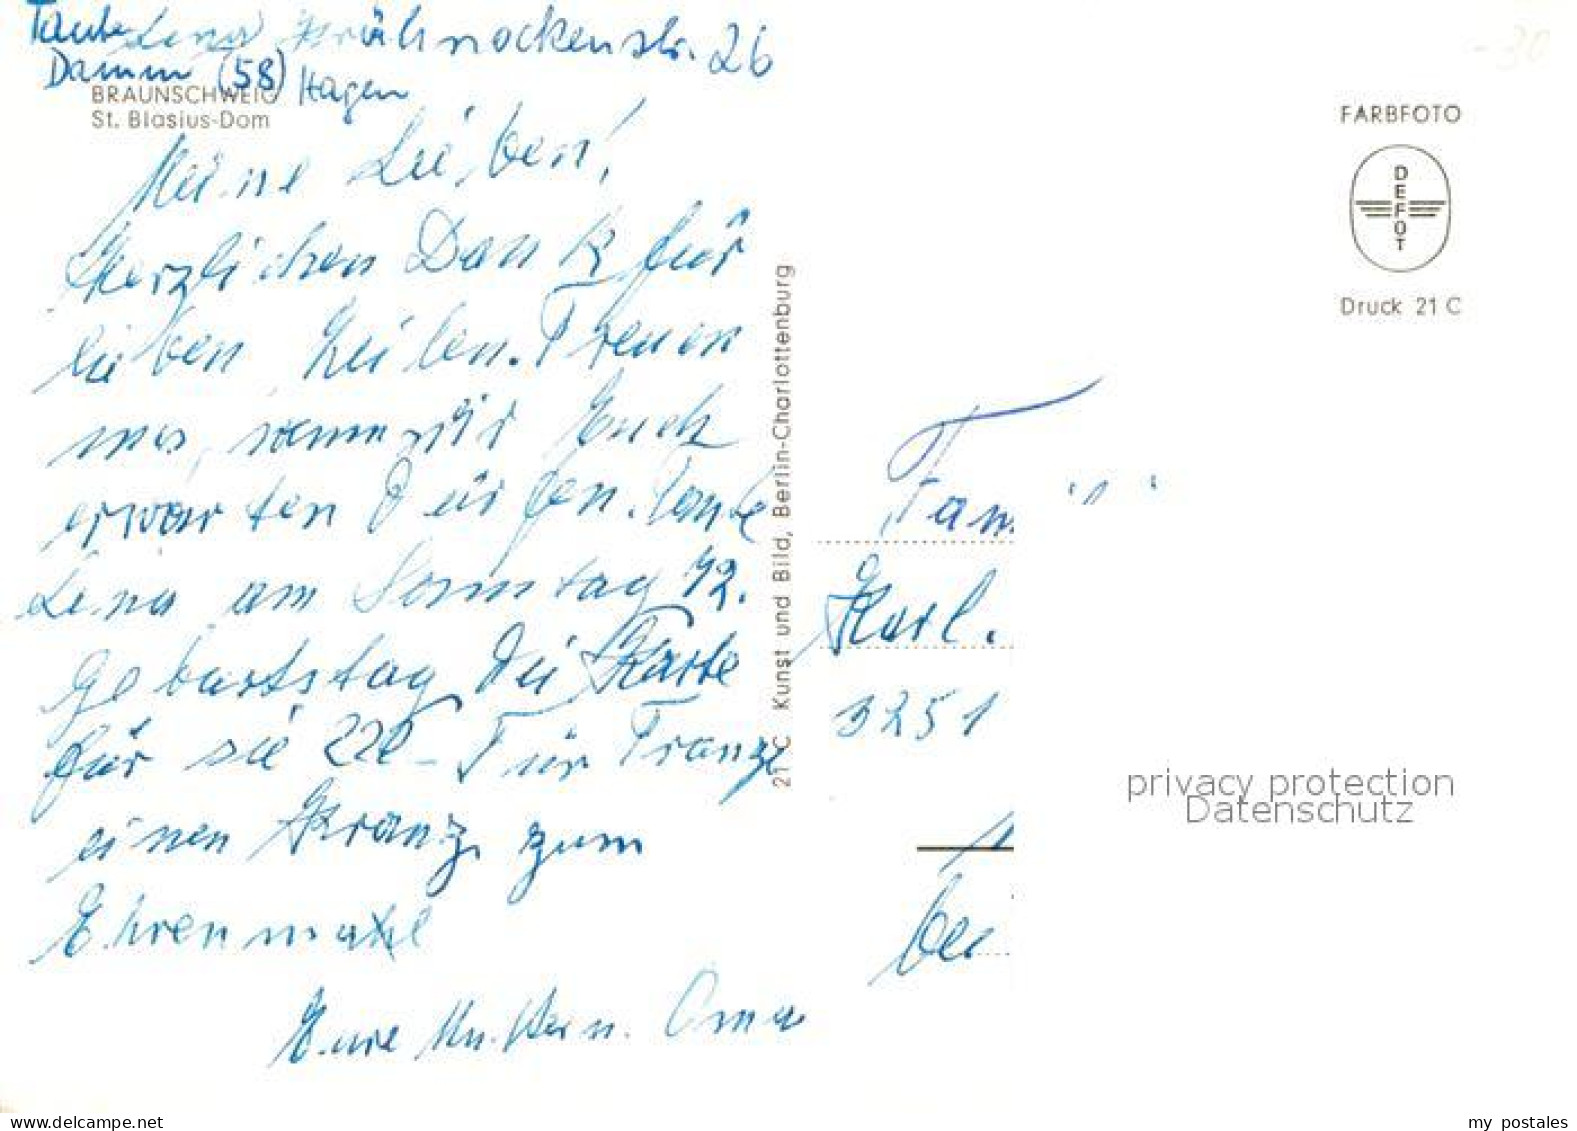 Tante Lena Krähnockenstr. 26
Damm (58) Hagen
BRAUNSCHWEIG
St. Blasius-Dom
Meine Lieben!
Herzlichen Dank für
lieben Zeilen. Freuen
uns, wenn wir Euch
erwarten dürfen. Tante
Lena am Sonntag 72.
Geburtstag die Karte
für sie 220- Für Franz
einen Kranz zum
Ehrenmahl
Eure Mu. Oma
21 C Kunst und Bild, Berlin-Charlottenburg
FARBFOTO
DEFOT
Druck 21 C
Fam
Karl.
3251
bei
privacy protection
Datenschutz
my postales
-30